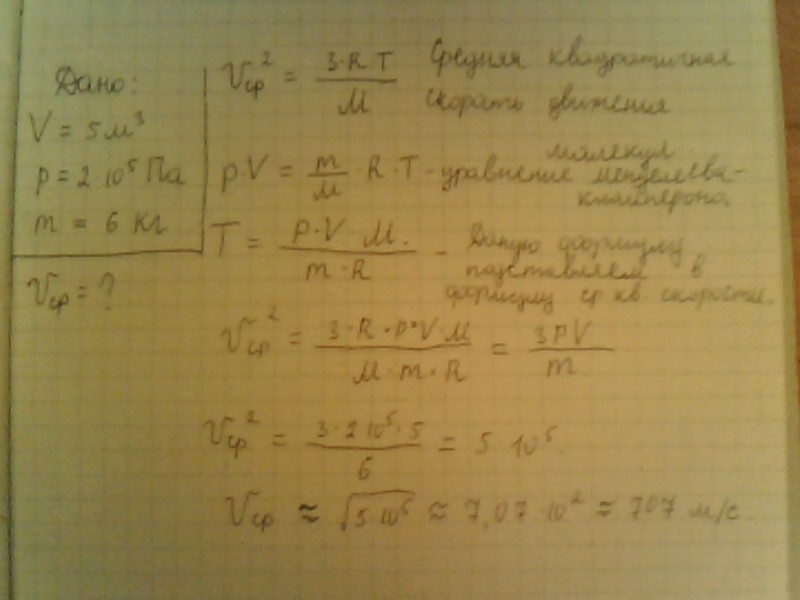 Дано:
V = 5 м³
p = 2 10⁵ Па
m = 6 кг
υср = ?
υср² = 3·R·T / M Средняя квадратичная
скорать движения
молекул
p·V = m/M · R·T - уравнение менделеева-
клайперона
T = P·V M. / m·R - Даную формулу
подставляем в
формулу ср кв. скорости.
υср² = 3·R·P·V·M / M·m·R = 3PV / m
υср² = 3·2 10⁵·5 / 6 = 5 10⁵.
υср ≈ √5 10⁵ ≈ 7,07·10² ≈ 707 м/с.